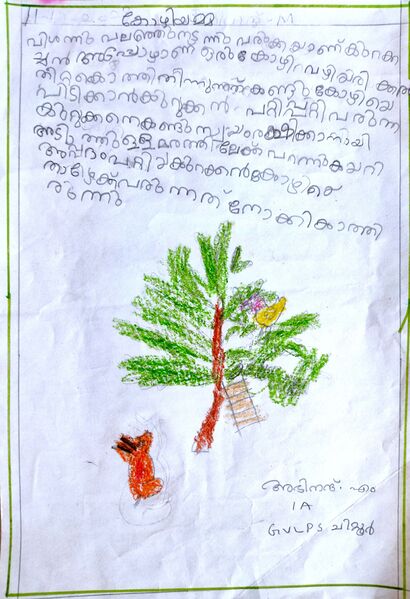 കോഴിയമ്മ
വിശന്നു വലഞ്ഞു നടന്നു വരുകയാണ് കുറുക്ക
ച്ചൻ അപ്പോഴാണ് ഒരു കോഴി വഴിയരി
തീറ്റകൊത്തിതിന്നുന്നത് കണ്ടു കോഴിയെ
പിടിക്കാൻ കുറുക്കൻ പതുപ്പതുവരുന്ന
കുറുക്കനെകണ്ടു സ്വയംരക്ഷിക്കാനായി
അടുത്തുള്ള മരത്തിലേക്ക് പറന്നുകയറി
കുറുക്കൻകോഴിയെ
താഴേക്ക് വരുന്നത് നോക്കി കാത്തി
രുന്നു
അഭിനന്ദ്. എം
1 A
GVLPS ചിറ്റൂർ